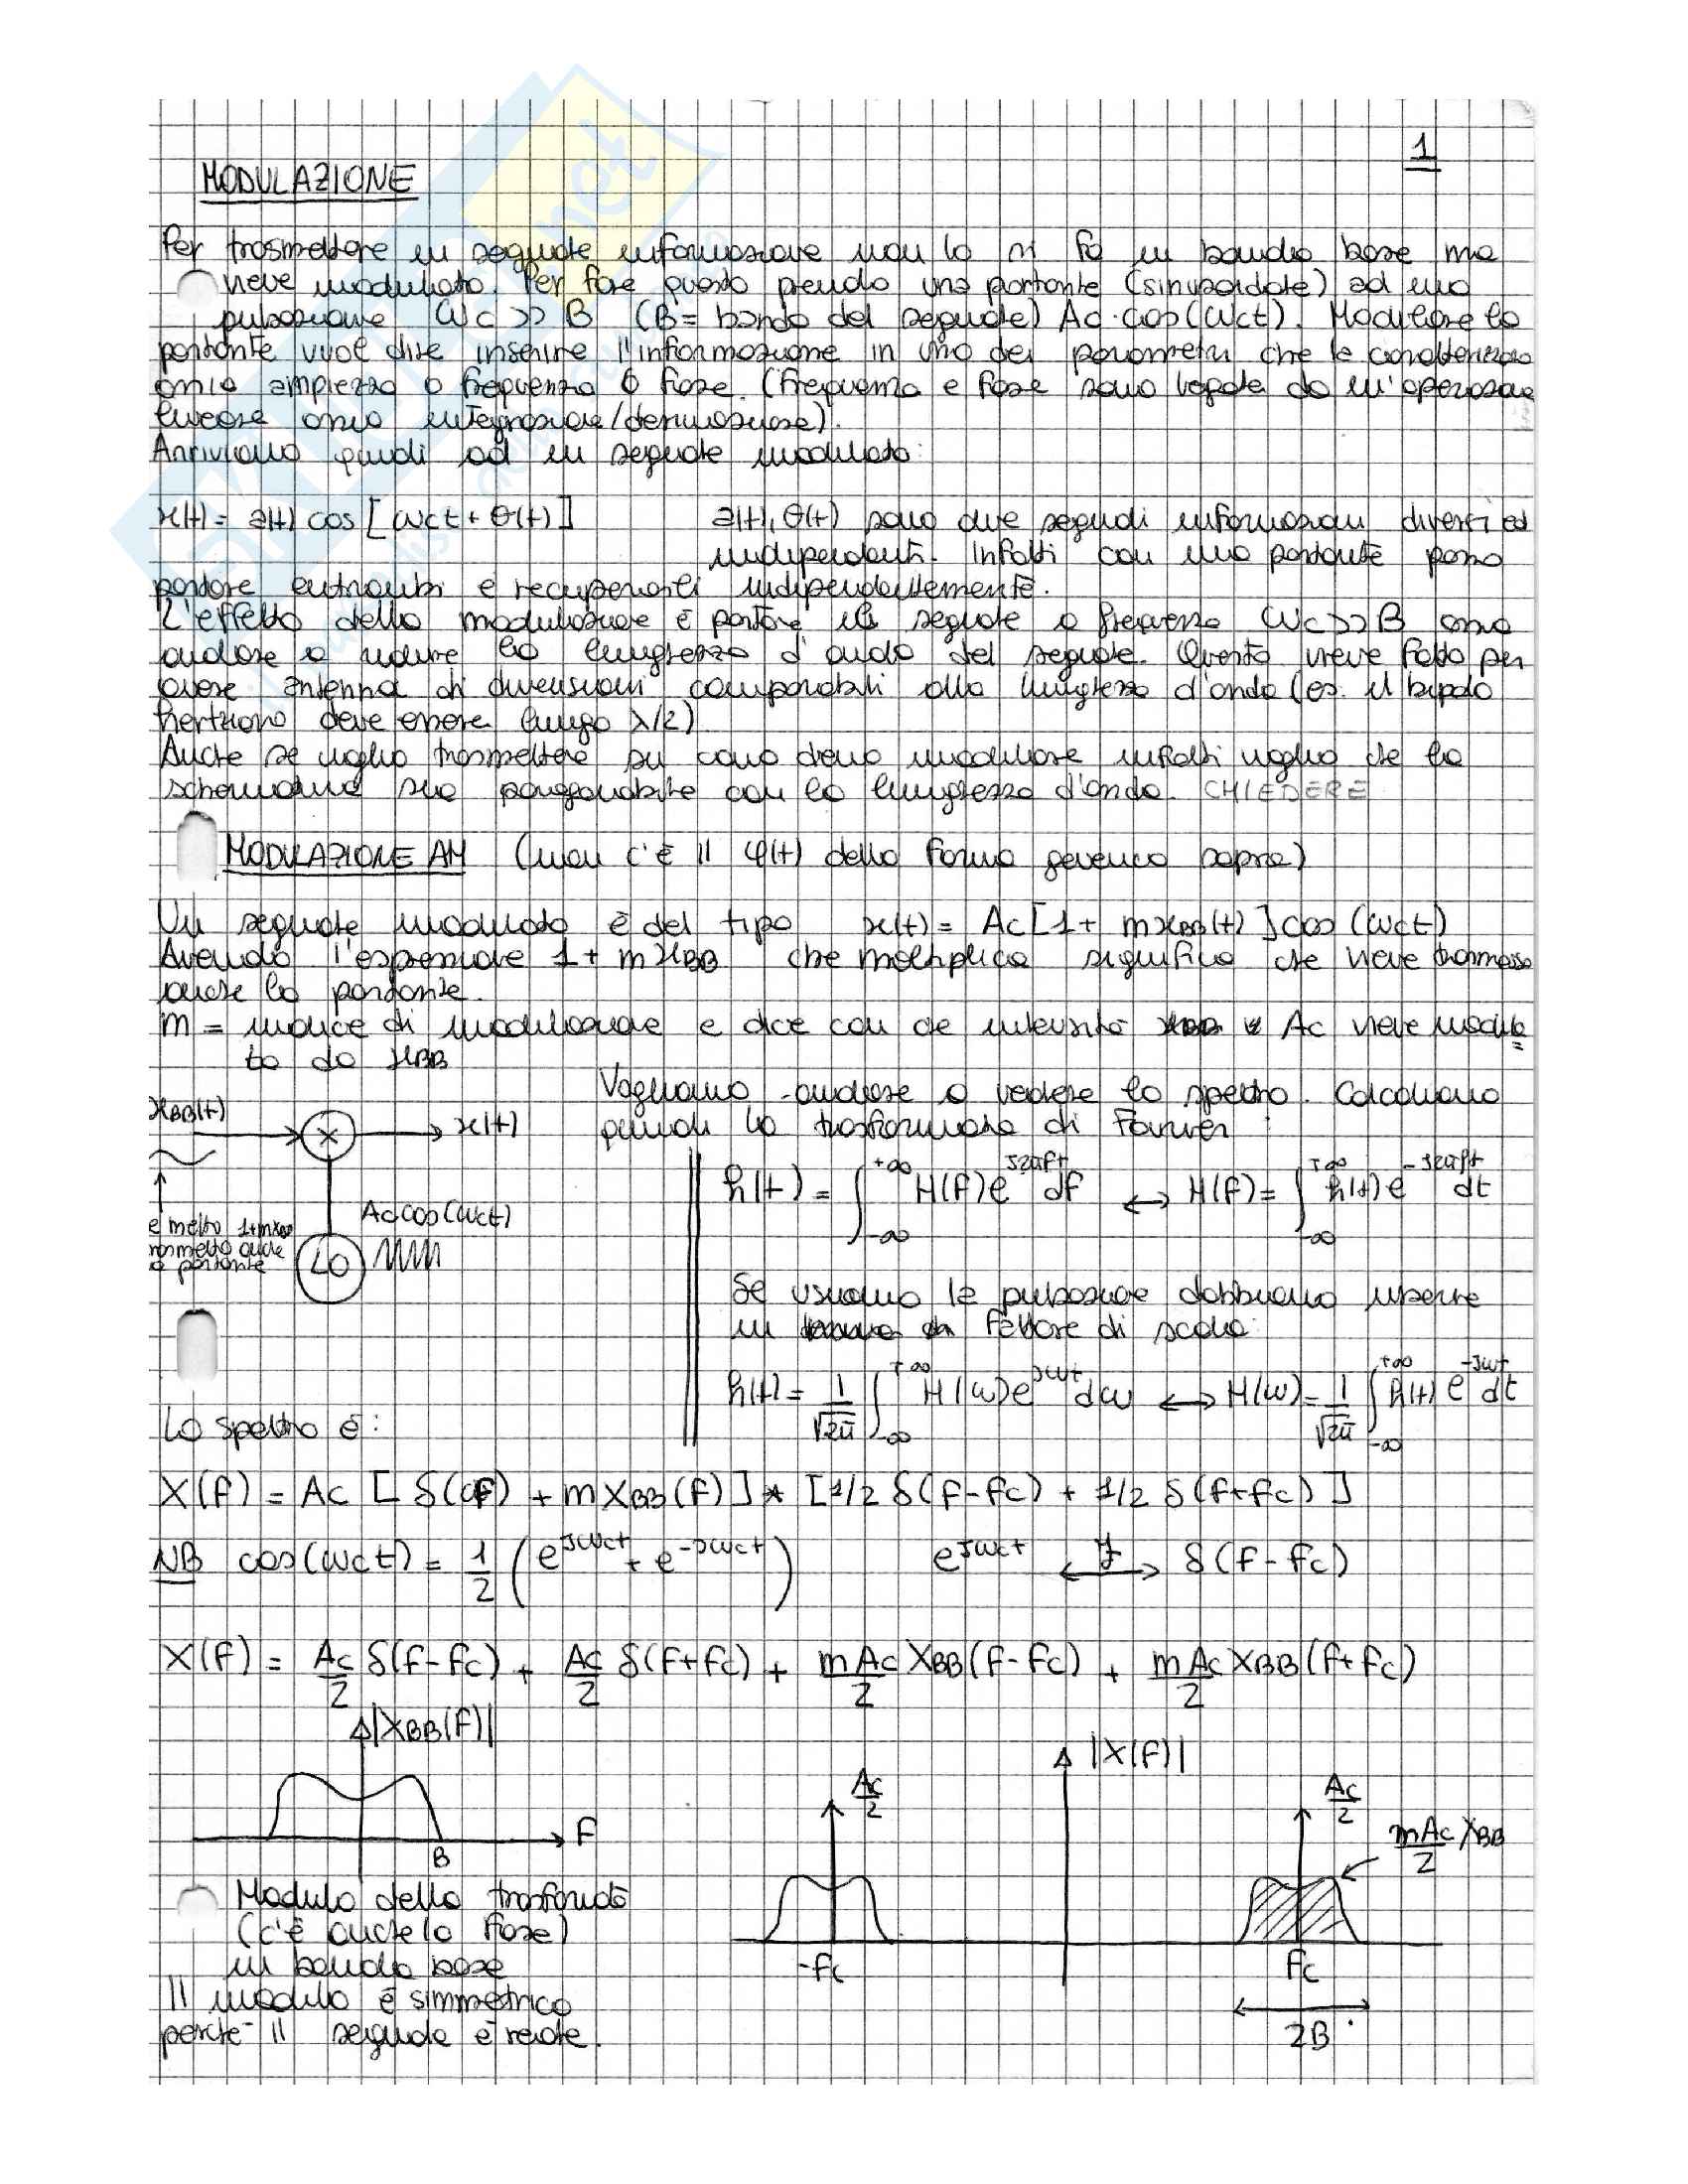 1
MODULAZIONE
Per trasmettere un segnale informazione non lo si fa in banda base ma
viene modulato. Per fare questo prendo una portante (sinusoidale) ad una
pulsazione ωc >> B (B = banda del segnale) Ac·cos(ωct). Modulare la
portante vuol dire inserire l'informazione in uno dei parametri che la caratterizzano
ossia ampiezza o frequenza o fase. (frequenza e fase sono legate da un'operazione
lineare ossia integrazione/derivazione).
Arriviamo quindi ad un segnale modulato:
x(t) = a(t) cos[ωct + θ(t)] a(t), θ(t) sono due segnali informazioni diversi ed
indipendenti. Infatti con una portante posso
portare entrambi e recuperarli indipendentemente.
L'effetto della modulazione è portare il segnale a frequenza ωc >> B ossia
andare a ridurre la lunghezza d'onda del segnale. Questo viene fatto per
avere antenna di dimensioni comparabili alla lunghezza d'onda (es. il dipolo
hertziano deve essere lungo λ/2)
Anche se voglio trasmettere su cavo devo modulare infatti voglio che la
schermatura sia paragonabile con la lunghezza d'onda. CHIEDERE
MODULAZIONE AM (non c'è il φ(t) della forma generica sopra)
Un segnale modulato è del tipo x(t) = Ac[1 + m xBB(t)] cos(ωct)
Avendo l'espressione 1 + m xBB che moltiplica significa che viene trasmessa
anche la portante.
m = indice di modulazione e dice con che intensità Ac viene modula=
to da xBB
Vogliamo andare a vedere lo spettro. Calcoliamo
quindi la trasformata di Fourier:
xBB(t) × x(t)
h(t) = ∫_{-∞}^{+∞} H(f) e^{j2πft} df ↔ H(f) = ∫_{-∞}^{+∞} h(t) e^{-j2πft} dt
Ac cos(ωct)
e metto 1+mxBB
rasmetto anche
a portante
LO
Se usiamo la pulsazione dobbiamo inserire
un fattore di scala:
h(t) = 1/√2π ∫_{-∞}^{+∞} H(ω) e^{jωt} dω ↔ H(ω) = 1/√2π ∫_{-∞}^{+∞} h(t) e^{-jωt} dt
Lo spettro è:
X(f) = Ac [δ(f) + m XBB(f)] * [1/2 δ(f-fc) + 1/2 δ(f+fc)]
NB cos(ωct) = 1/2 (e^{jωct} + e^{-jωct}) e^{jωct} ↔ℱ δ(f-fc)
X(f) = Ac/2 δ(f-fc) + Ac/2 δ(f+fc) + mAc/2 XBB(f-fc) + mAc/2 XBB(f+fc)
|XBB(f)|
f
B
|X(f)|
Ac/2
Ac/2
mAc/2 XBB
-fc
fc
2B
Modulo della trasformata
(c'è anche la fase)
in banda base
Il modulo è simmetrico
perche il segnale è reale.